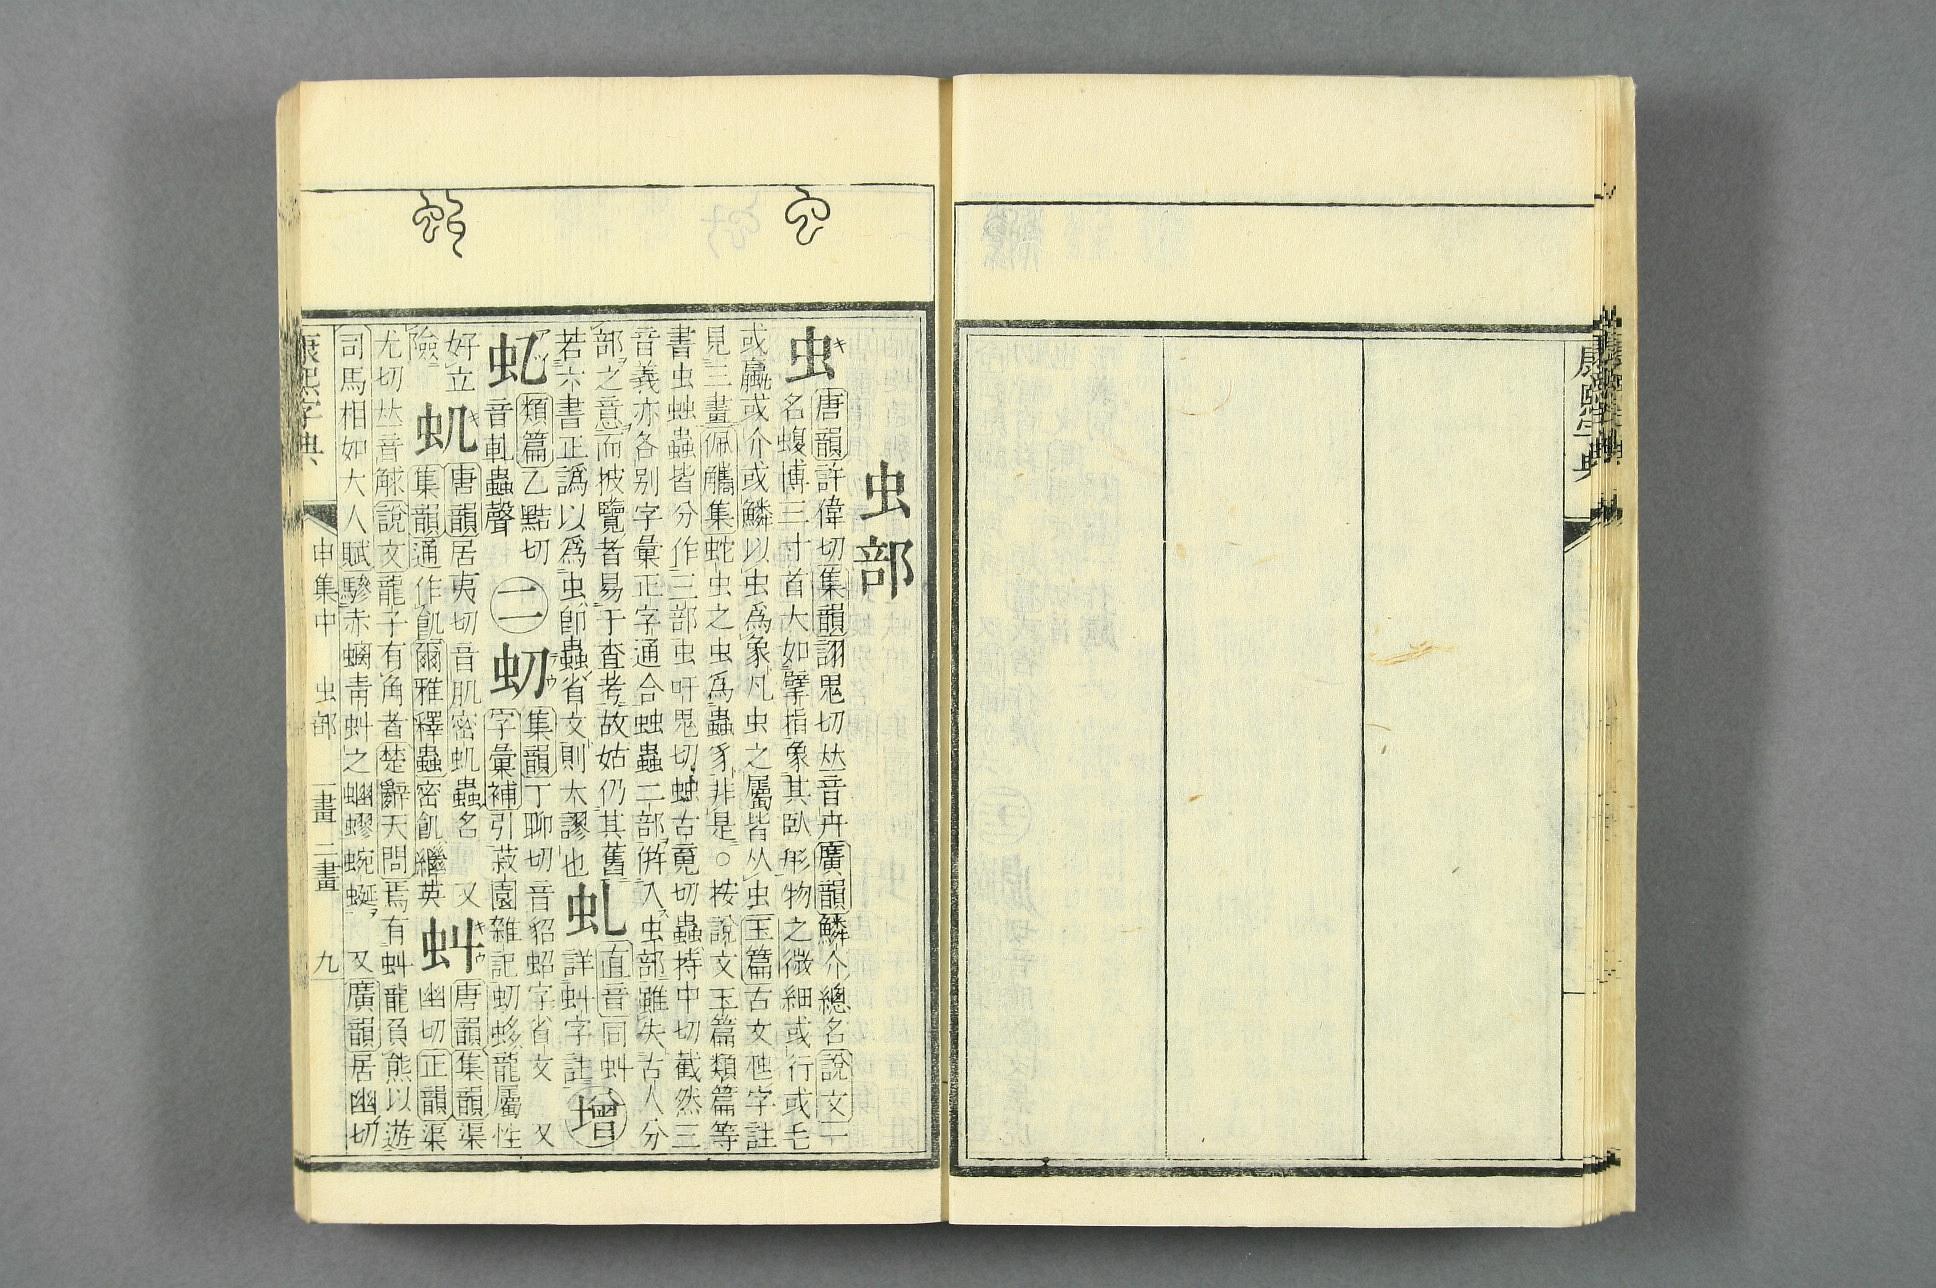 康熙字典
虫部
虫
唐韻許偉切集韻詡鬼切𠀤音卉廣韻鱗介總名說文一
名蝮博三寸首大如擘指象其臥形物之微細或行或毛
或蠃或介或鱗以虫爲象凡虫之屬皆从虫玉篇古文虺字註
見三畫佩觿集蛇虫之虫爲蟲豸非是○按說文玉篇類篇等
書虫䖵蟲皆分作三部虫吁鬼切䖵古䰟切蟲持中切截然三
音義亦各别字彙正字通合䖵蟲二部倂入虫部雖失古人分
部之意而披覽者易于查考故姑仍其舊
若六書正譌以爲虫卽蟲省文則大謬也
虬
直音同虯
詳虯字註
增
類篇乙黠切
音軋蟲聲
二
虭
集韻丁聊切音貂蛁字省文 又
字彙補引菽園雜記虭龍屬性
好立
險
虮
唐韻居夷切音肌密虮蟲名 又
集韻通作飢爾雅釋蟲密飢繼英
虯
唐韻集韻渠
幽切正韻渠
尤切𠀤音觩說文龍子有角者楚辭天問焉有虯龍負熊以遊
司馬相如大人賦驂赤螭靑虯之蚴蟉蜿蜒 又廣韻居幽切
康熙字典 申集中 虫部 一畫 二畫 九